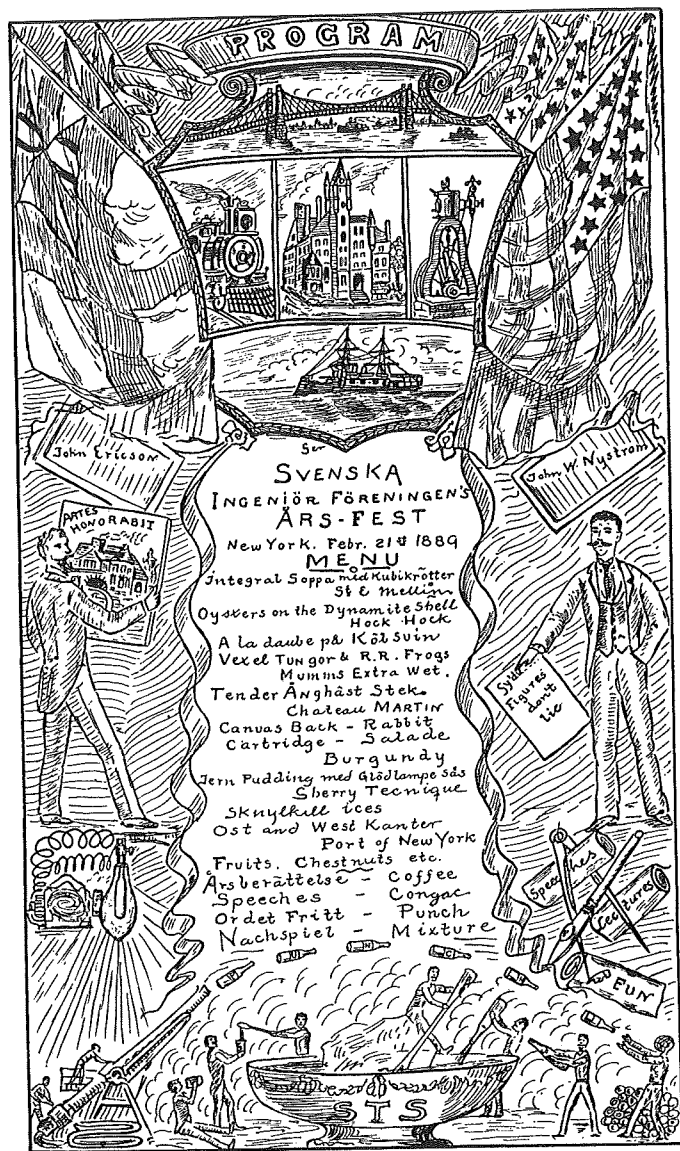 PROGRAM
John Ericson
John W. Nystrom
ARTES
HONORABIT
Ser
SVENSKA
INGENIÖR FÖRENINGEN'S
ÅRS-FEST
New York. Febr. 21st 1889
MENU
Integral Soppa mid Kubikrötter
St E Mellion
Oysters on the Dynamite Shell
Hock Hock
A la daube på Kölsvin
Vexel Tungor & R.R. Frogs
Mumms Extra Wet.
Tender Ånghäst Stek.
Chateau MARTIN
Canvas Back - Rabbit
Cartridge - Salade
Burgundy
Jern Pudding med Glödlampe Sås
Sherry Tecnique
Skhylkill ices
Ost and West Kanter
Port of New York
Fruits, Chestnuts etc.
Årsberättelse - Coffee
Speeches - Congac
Ordet Fritt - Punch
Nachspiel - Mixture
Figures
dont
lie
Speeches
Lectures
FUN
STS